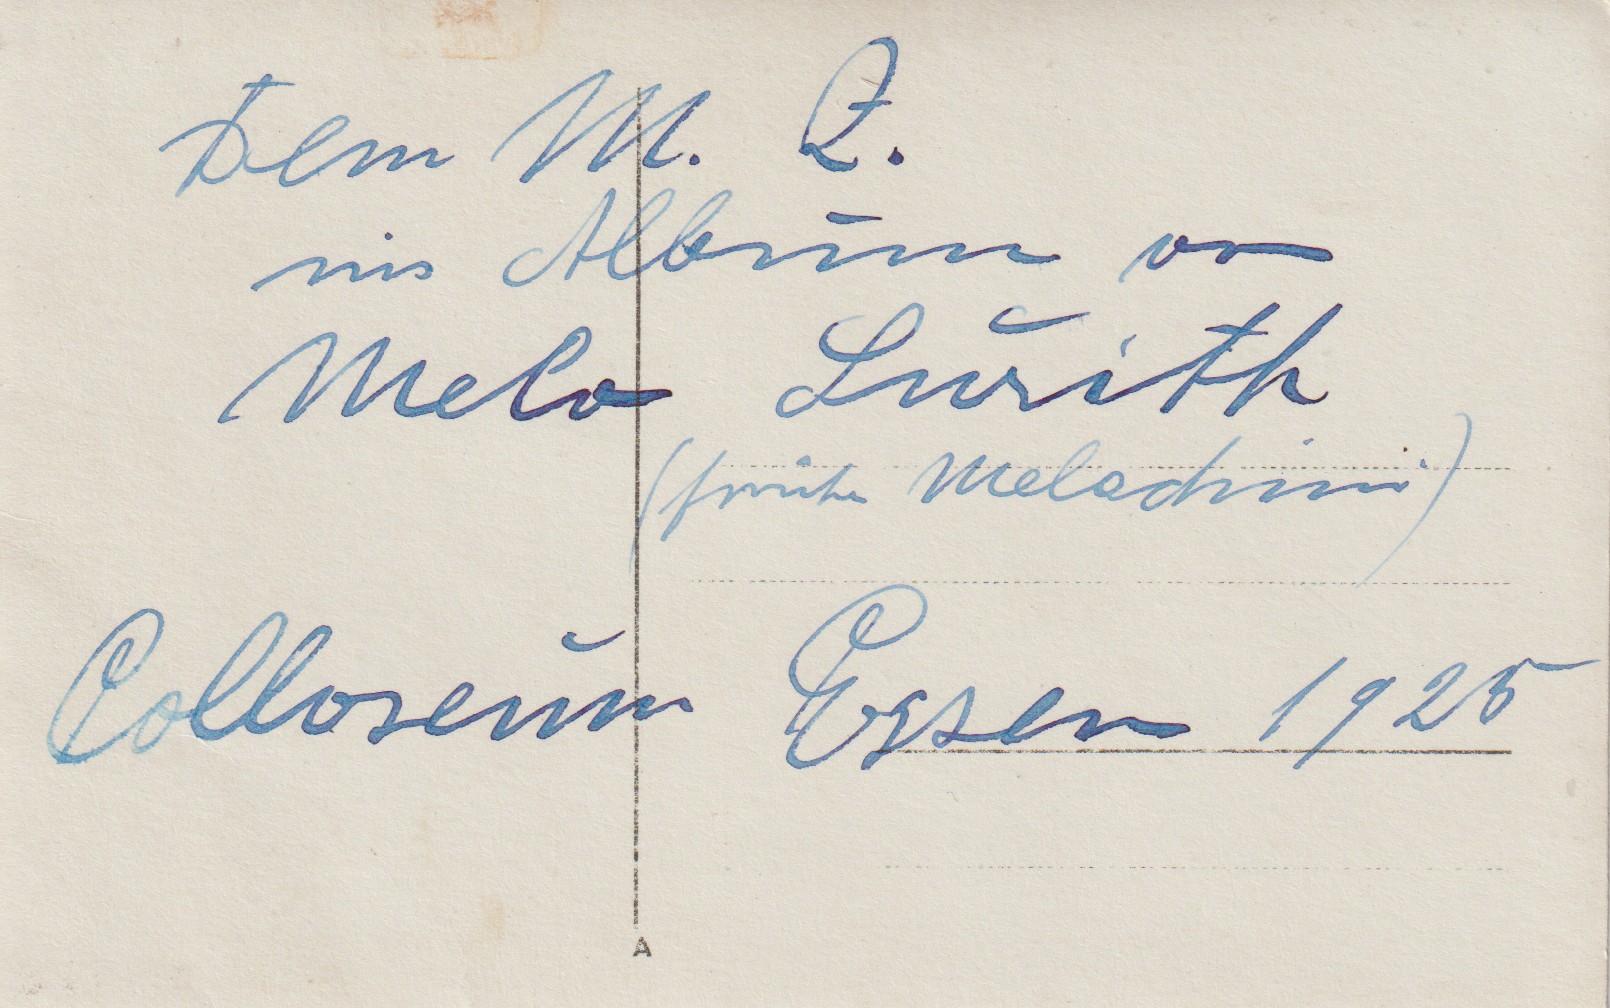 Dem M. Z.
ins Album von
Melo Lurith
(früher Melachrini)
Colloseum Essen 1925
A